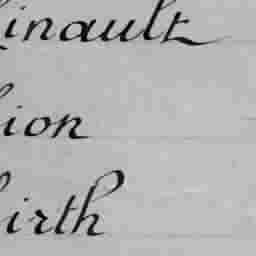 inault
ion
irth